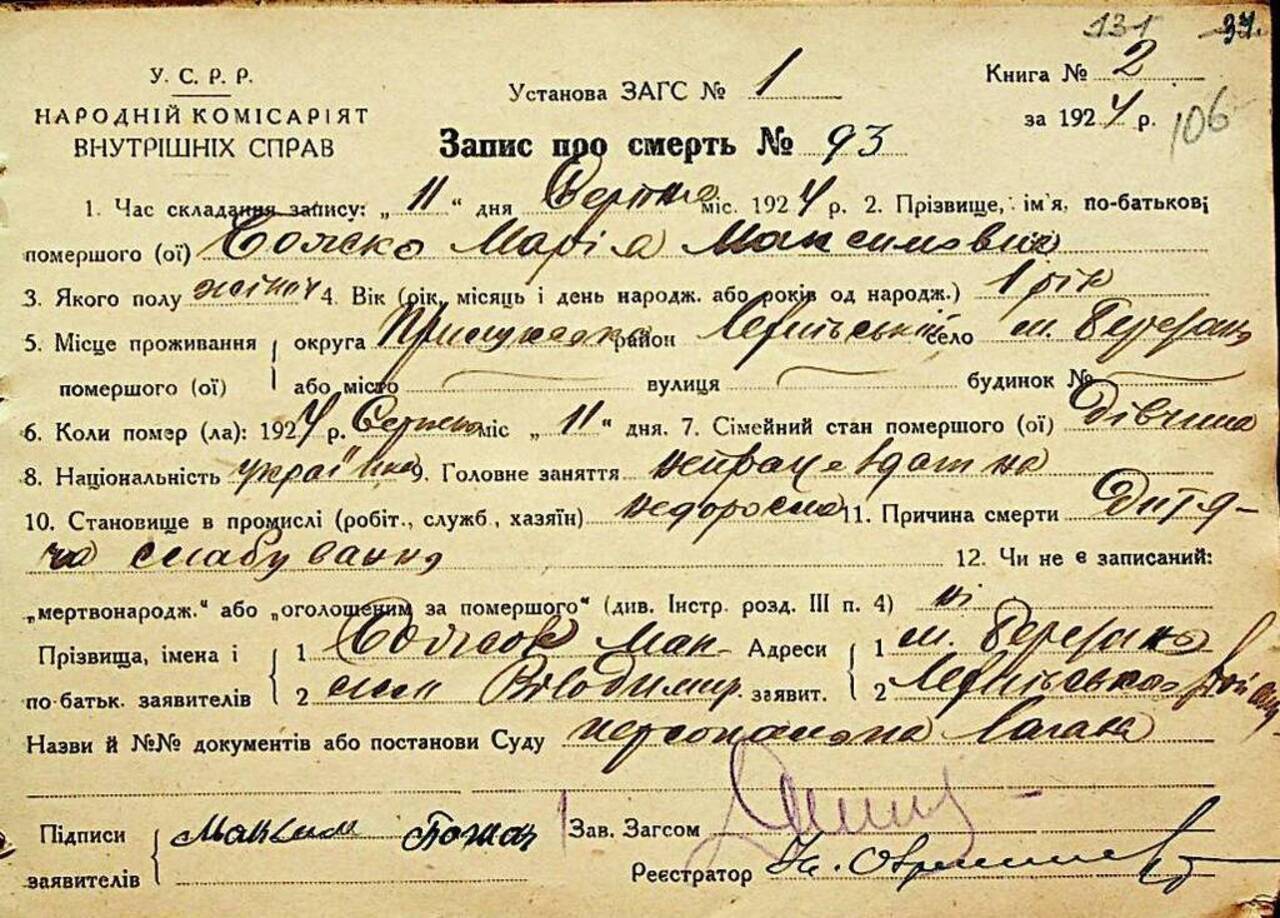 131 34.
У. С. Р. Р.
НАРОДНІЙ КОМІСАРІЯТ
ВНУТРІШНІХ СПРАВ
Установа ЗАГС № 1
Книга № 2
за 1924 р.
106
Запис про смерть № 93
1. Час складання запису: „ 11 “ дня Серпня міс. 1924 р. 2. Прізвище, ім'я, по-батькові
помершого (ої) Марія Максимовна
3. Якого полу жіноч 4. Вік (рік, місяць і день народж. або років од народж.) 1 рік
5. Місце проживання округа Прилуцька район село м. Березань
помершого (ої) або місто вулиця будинок №
6. Коли помер (ла): 1924 р. Серпня міс „ 11 “ дня. 7. Сімейний стан помершого (ої) Дівчина
8. Національність українка 9. Головне заняття непрацевдатна
10. Становище в промислі (робіт., служб., хазяїн) недоросла 11. Причина смерти Дитя-
ча слабування 12. Чи не є записаний:
„мертвонародж.“ або „оголошеним за помершого“ (див. Інстр. розд. III п. 4) ні
Прізвища, імена і 1 Мак- Адреси 1 м. Березань
по-батьк. заявителів 2 сим Володимир. заявит. 2
Назви й №№ документів або постанови Суду персональна
Підписи Максим Зав. Загсом
заявителів Реєстратор